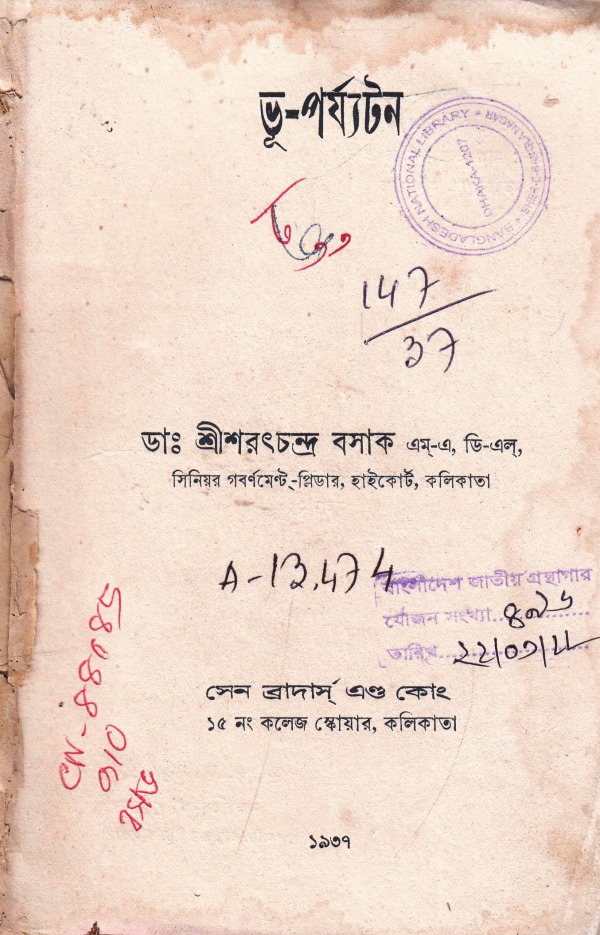 ভূ-পর্য্যটন
BANGLADESH NATIONAL LIBRARY
DHAKA-1207
147
37
ডাঃ শ্রীশরৎচন্দ্র বসাক এম্-এ, ডি-এল্,
সিনিয়র গবর্ণমেণ্ট-প্লিডার, হাইকোর্ট, কলিকাতা
A-13,474
বাংলাদেশ জাতীয় গ্রন্থাগার
সংখ্যা
তারিখ
সেন ব্রাদার্স্ এণ্ড কোং
১৫ নং কলেজ স্কোয়ার, কলিকাতা
910
বসাভ
১৯৩৭